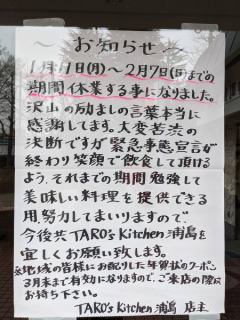 ～お知らせ～
1月11日(月)～2月7日(日)までの
期間休業する事になりました。
沢山の励ましの言葉本当に
感謝してます。大変苦渋の
決断ですが緊急事態宣言が
終わり笑顔で飲食して頂ける
よう、それまでの期間勉強して
美味しい料理を提供できる
用、努力してまいりますので、
今後共TARO's Kitchen浦島を
宜しくお願い致します。
※地域の皆様にお配りした年賀状のクーポン
3月末まで有効になりますので、ご来店の際に
お持ち下さい。
TARO's Kitchen浦島 店主